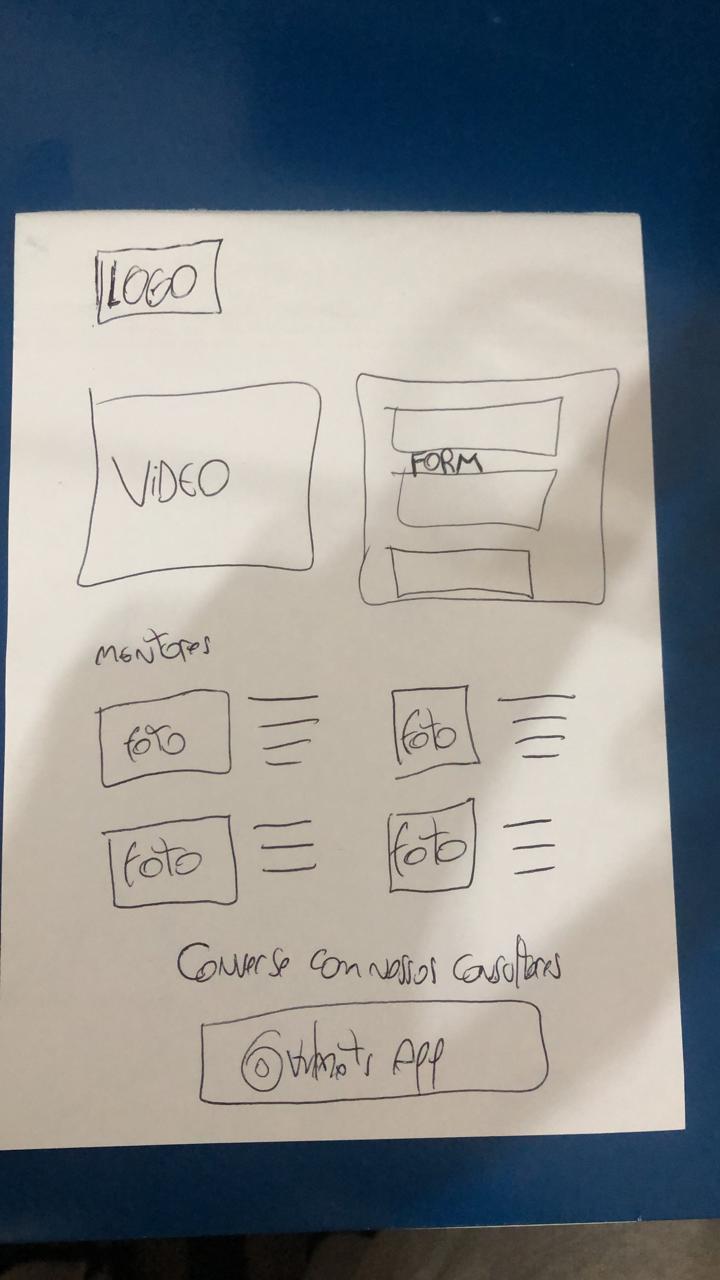 LOGO
VIDEO
FORM
MENTORES
foto
foto
foto
foto
Converse com nossos consultores
Whats App